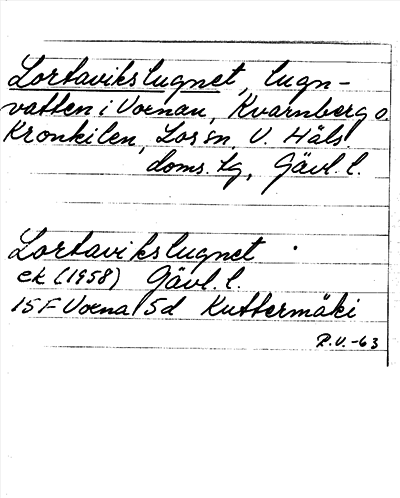 Lortavikslugnet, lugn-
vatten i Voxnan, Kvarnberg o.
Kronkilen, Los sn, V. Häls.
doms. tg, Gävl. l.
Lortavikslugnet
ek (1958) Gävl. l.
15F Voxna 5d Kuttermäki
R.V.-63